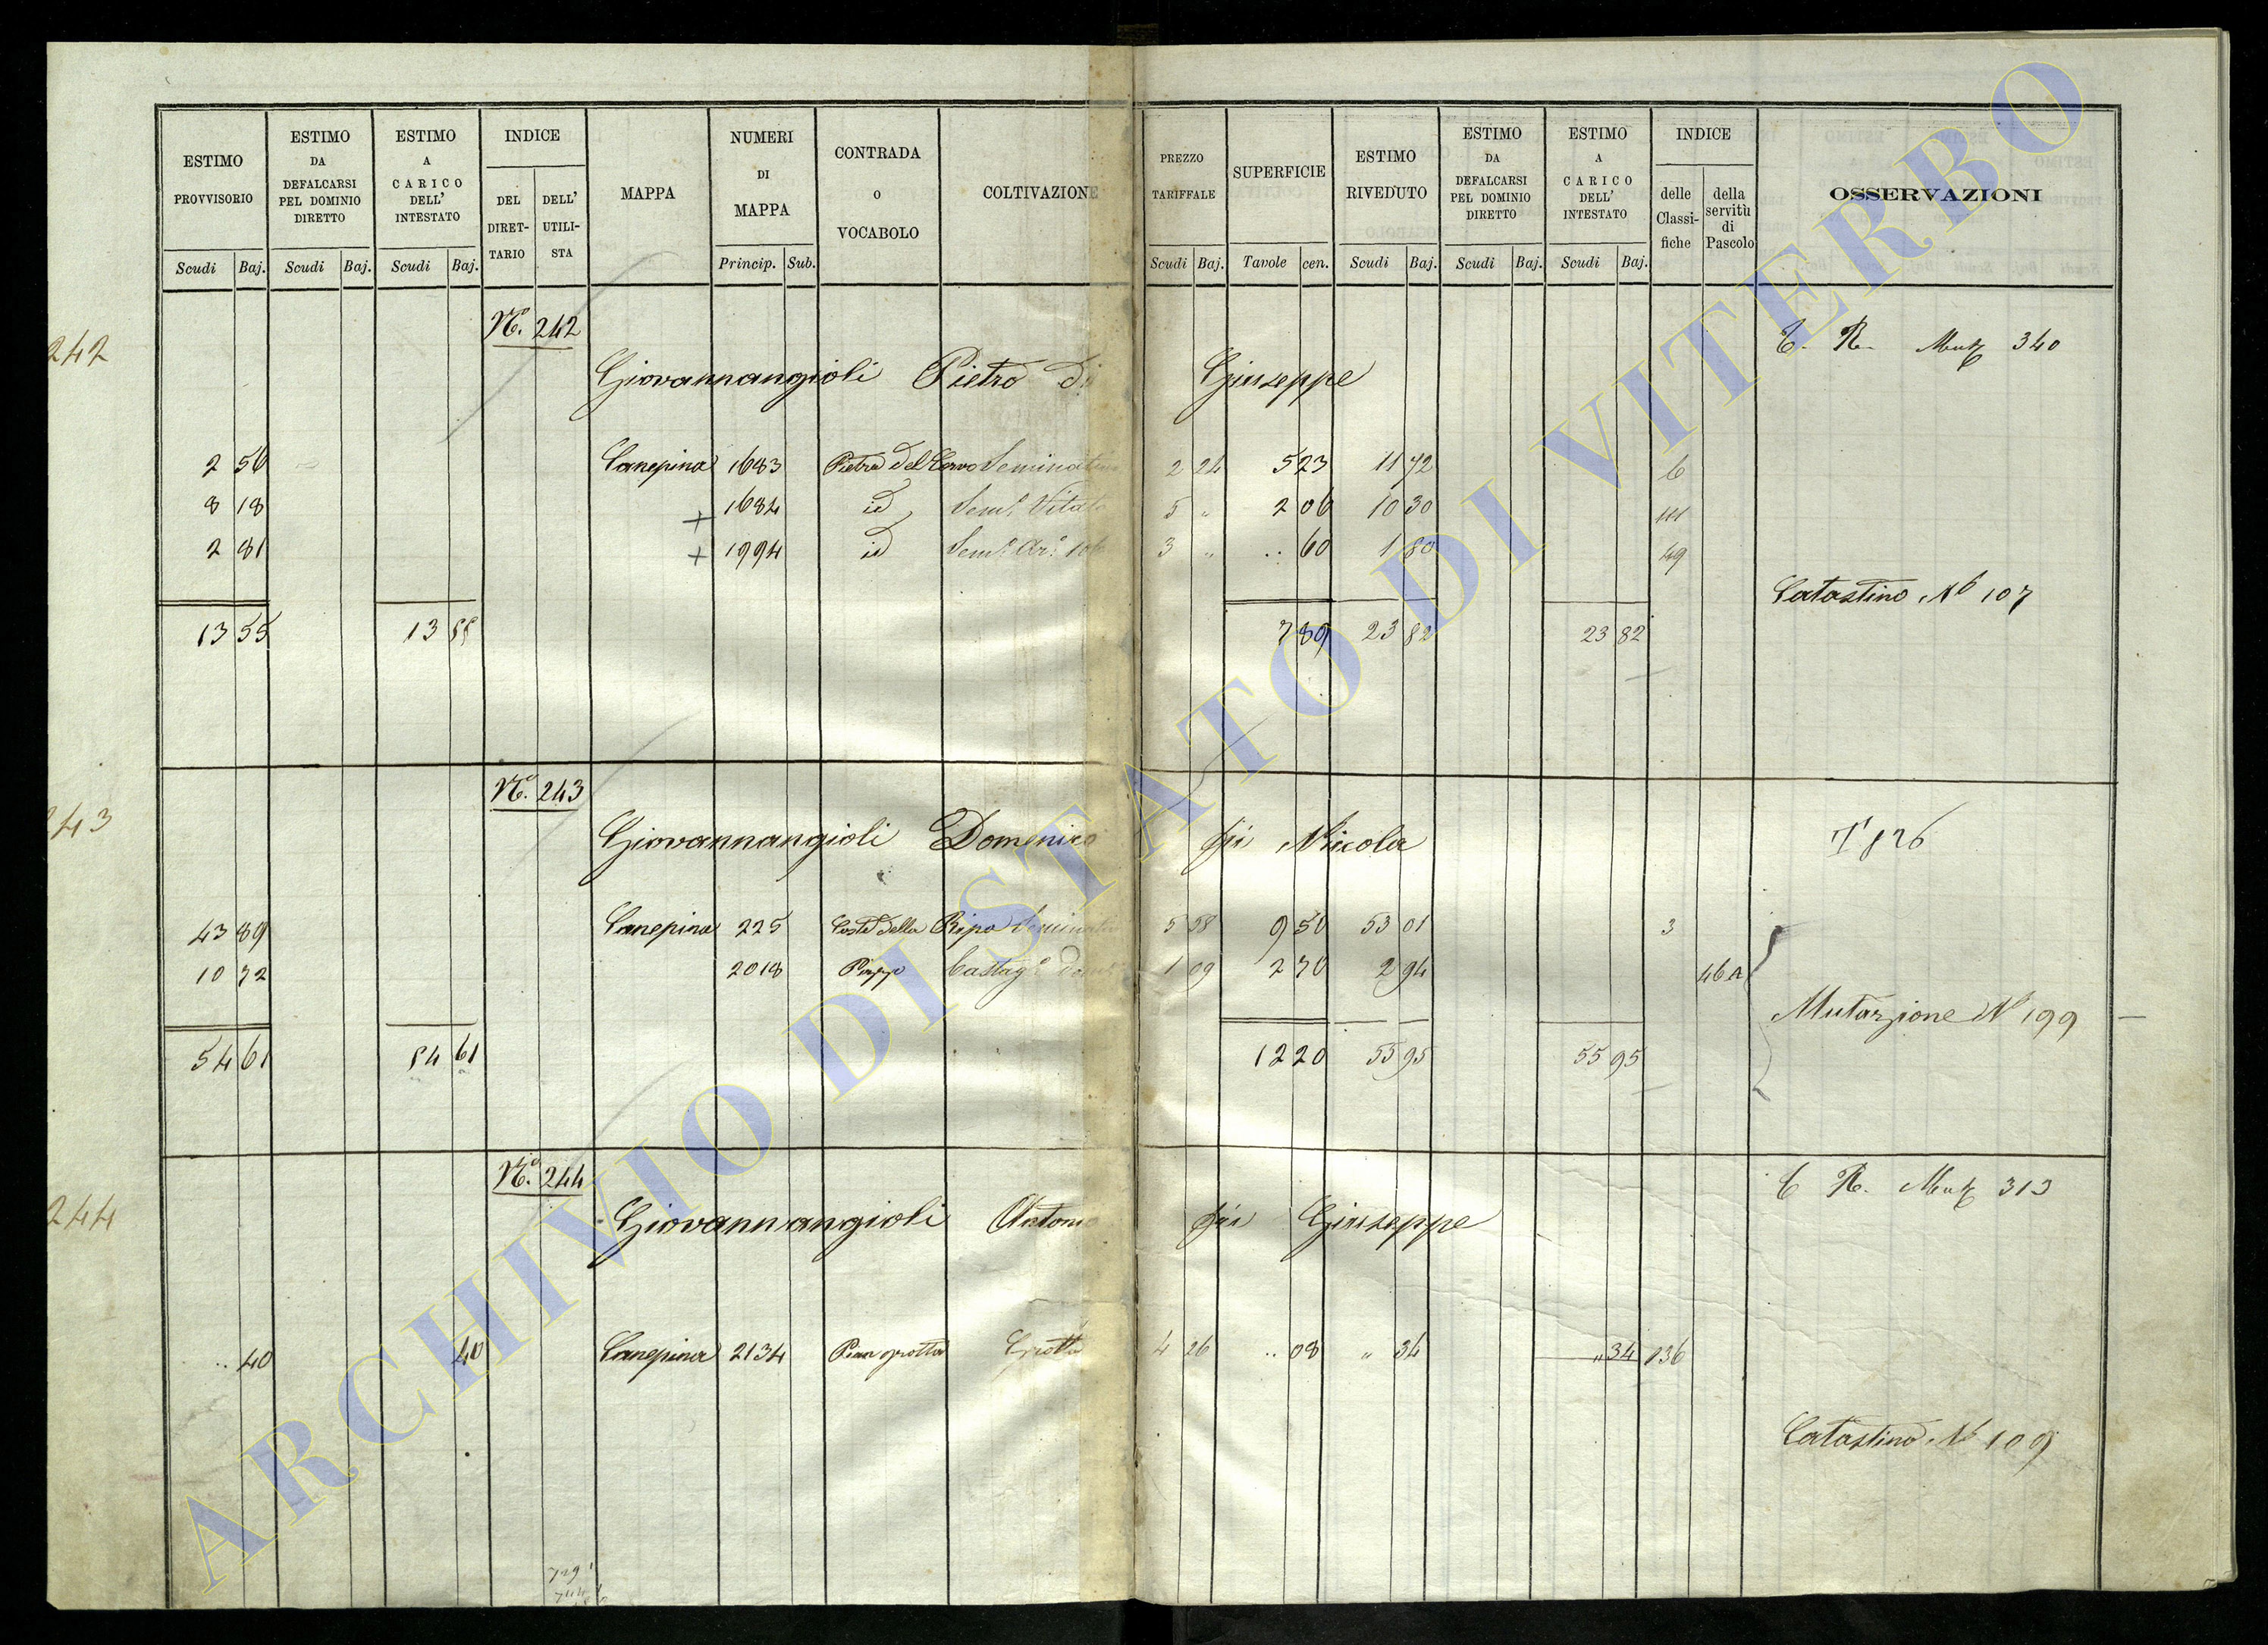 ESTIMO PROVVISORIO
ESTIMO DA DEFALCARSI PEL DOMINIO DIRETTO
ESTIMO A CARICO DELL' INTESTATO
INDICE
DEL DIRET-TARIO
DELL' UTILI-STA
MAPPA
NUMERI DI MAPPA
CONTRADA o VOCABOLO
COLTIVAZIONE
PREZZO TARIFFALE
SUPERFICIE
ESTIMO RIVEDUTO
ESTIMO DA DEFALCARSI PEL DOMINIO DIRETTO
ESTIMO A CARICO DELL' INTESTATO
INDICE
delle Classi-fiche
della servitù di Pascolo
OSSERVAZIONI
Scudi Baj. Scudi Baj. Scudi Baj. Princip. Sub. Scudi Baj. Tavole cen. Scudi Baj. Scudi Baj. Scudi Baj.
242 N.º 242 C. R. Mut 340
Giovannangioli Pietro di Giuseppe
2 56 Canepina 1683 Pietra del Cervo Seminativo 2 24 5 23 11 72 6
8 18 + 1684 id Sem.º Vitato 5 " 2 06 10 30 111
2 81 + 1994 id Sem.º Ar.º 3 " .. 60 1 80 49
Catastino Nº 107
13 55 13 55 7 89 23 82 23 82
243 N.º 243
Giovannangioli Domenico fu Nicola T 826
43 89 Canepina 225 Coste della Ripa Seminativo 5 58 9 50 53 01 3
10 72 2018 Castag.º 1 09 2 70 2 94 46A
Mutazione Nº 199
54 61 54 61 12 20 55 95 55 95
244 N.º 244 C R. Mut 313
Giovannangioli Antonio fu Giuseppe
.. 40 40 Canepina 2134 Pian grotta Grotta 4 26 .. 08 " 34 " 34 136
Catastino Nº 109
729
ARCHIVIO DI STATO DI VITERBO